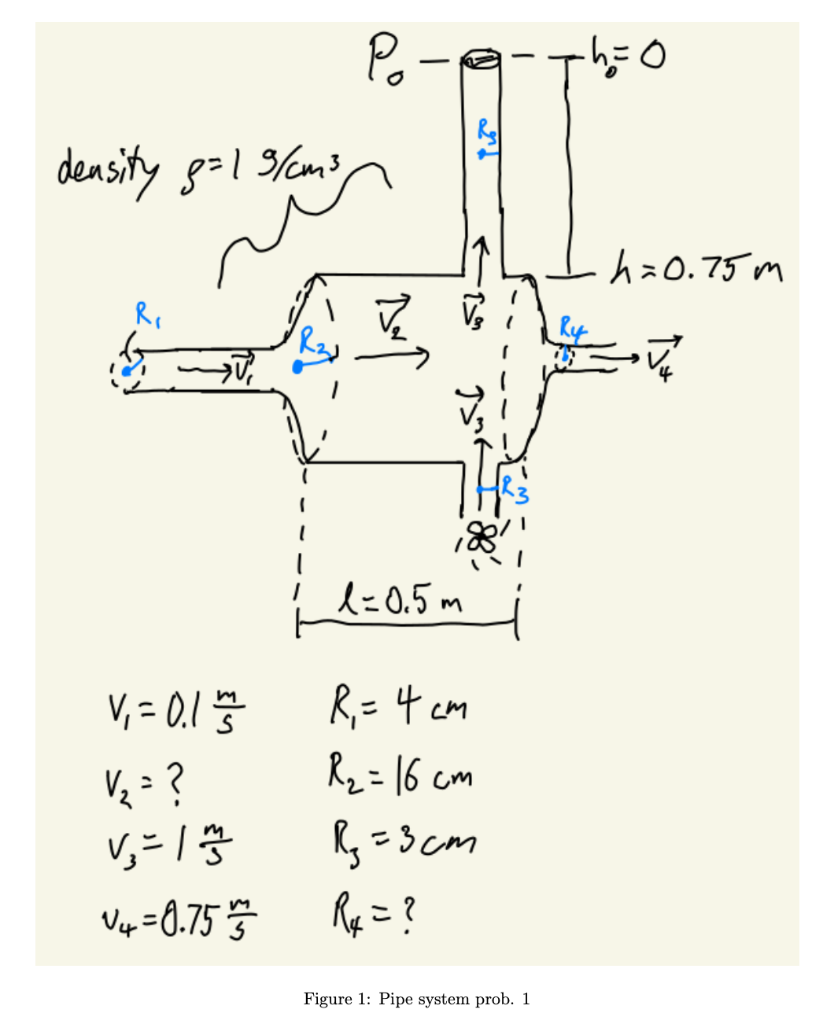 P₀ — — h₀=0
R₃
density ρ=1 g/cm³
h=0.75m
R₁
V⃗₂
V⃗₃
R₄
R₂
V⃗₁
V⃗₄
V⃗₃
R₃
l=0.5 m
V₁ = 0.1 m/s R₁ = 4 cm
V₂ = ? R₂ = 16 cm
V₃ = 1 m/s R₃ = 3 cm
V₄ = 0.75 m/s R₄ = ?
Figure 1: Pipe system prob. 1